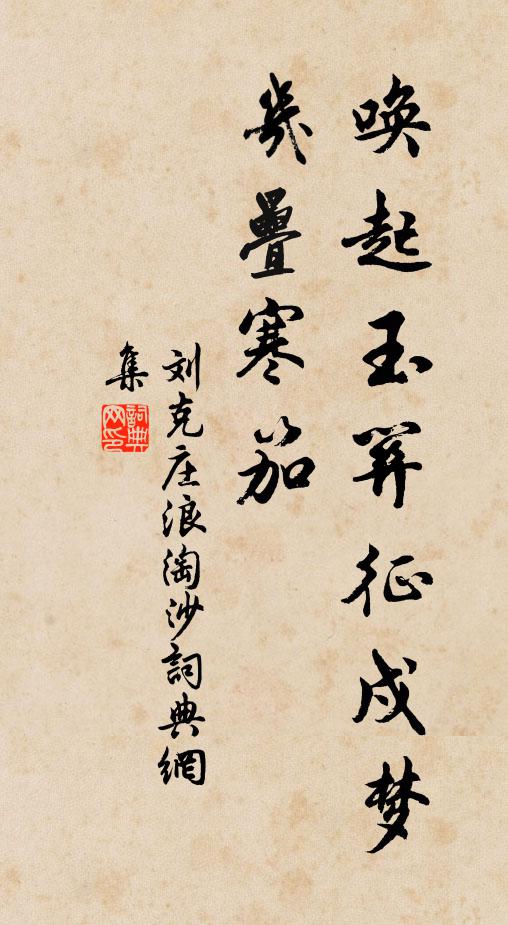 唤起玉关征戍梦
几叠寒笳
刘克庄浪淘沙詞典網
集
詞典
网印